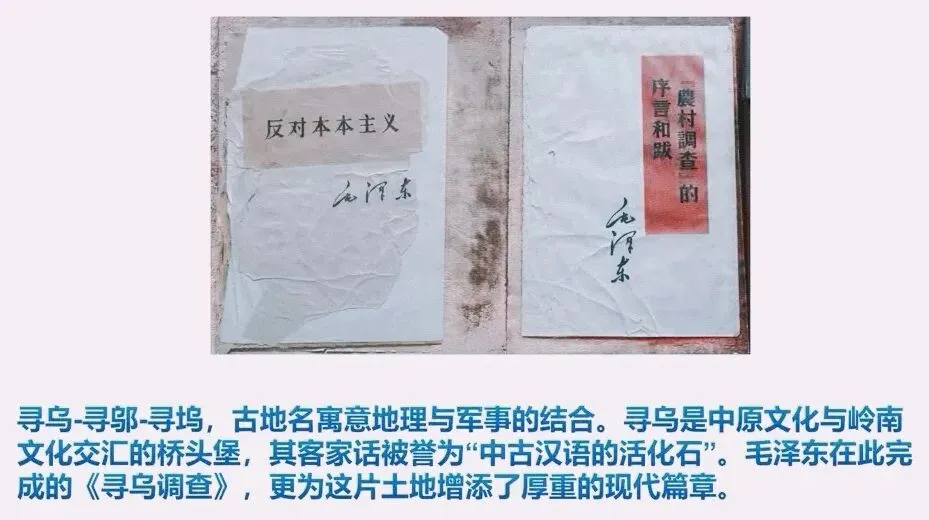 反对本本主义
毛泽东
『農村調查』的
序言和跋
毛泽东
寻乌-寻邬-寻坞，古地名寓意地理与军事的结合。寻乌是中原文化与岭南
文化交汇的桥头堡，其客家话被誉为“中古汉语的活化石”。毛泽东在此完
成的《寻乌调查》，更为这片土地增添了厚重的现代篇章。